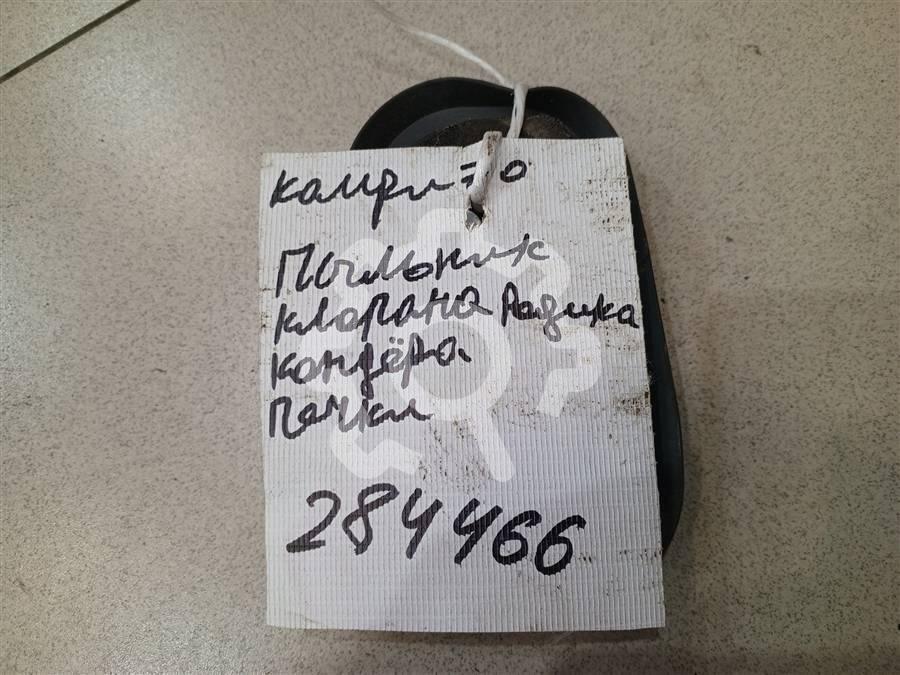 камри 70
Пыльник
клапана Радика
кондёра
печки
284466